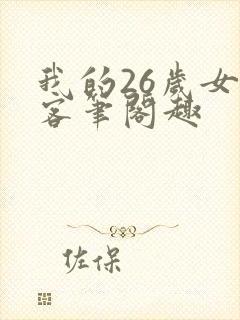 我的26歲女
客筆閣趣
佐保